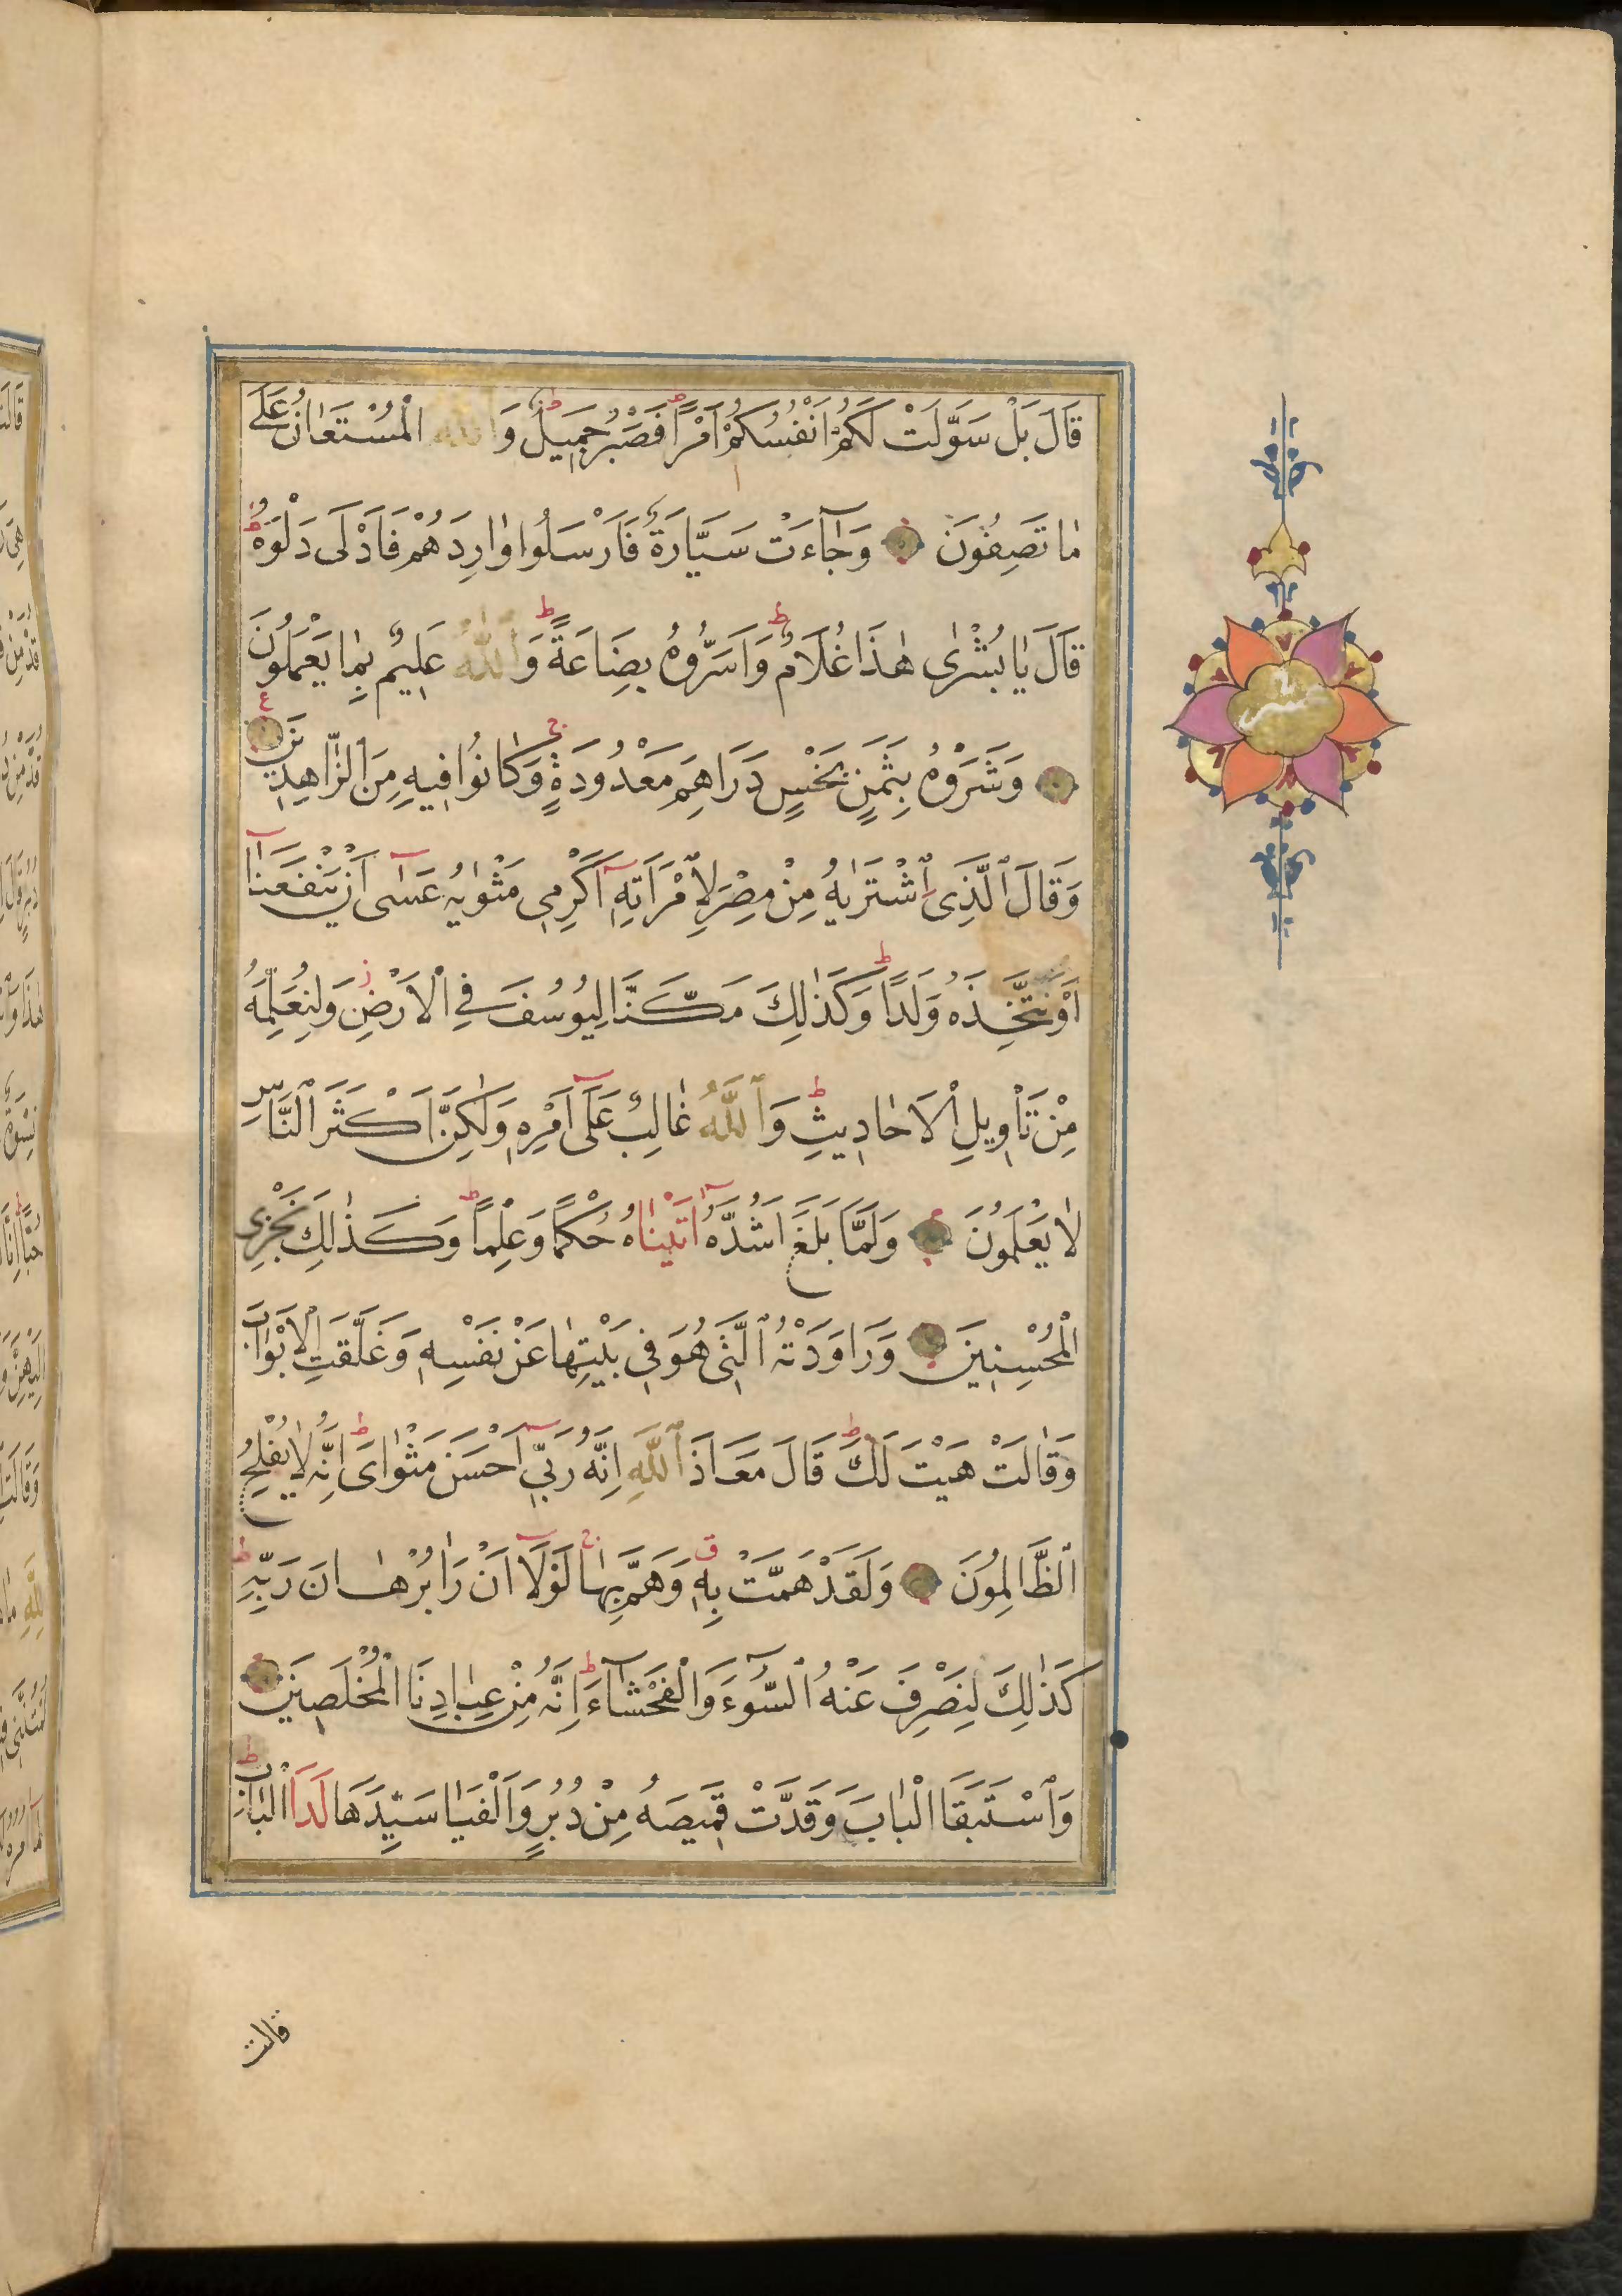 قَالَ بَلْ سَوَّلَتْ لَكُمْ اَنْفُسُكُمْ اَمْرًا فَصَبْرٌ جَمِيلٌ وَاللّٰهُ الْمُسْتَعَانُ عَلٰى
مٰا تَصِفُونَ وَجٰآءَتْ سَيَّارَةٌ فَاَرْسَلُوا وٰارِدَهُمْ فَاَدْلٰى دَلْوَهُ
قَالَ يٰا بُشْرٰى هٰذَا غُلَامٌ وَاَسَرُّوهُ بِضَاعَةً وَاللّٰهُ عَلِيمٌ بِمٰا يَعْمَلُونَ
وَشَرَوْهُ بِثَمَنٍ بَخْسٍ دَرَاهِمَ مَعْدُودَةٍ وَكٰانُوا فِيهِ مِنَ الزّٰاهِدِينَ
وَقَالَ ٱلَّذِى ٱشْتَرٰيهُ مِنْ مِصْرَ لِامْرَاَتِهِ اَكْرِمِى مَثْوٰيهُ عَسٰى اَنْ يَنْفَعَنٰا
اَوْ نَتَّخِذَهُ وَلَدًا وَكَذٰلِكَ مَكَّنَّا لِيُوسُفَ فِى الْاَرْضِ وَلِنُعَلِّمَهُ
مِنْ تَاْوِيلِ الْاَحٰادِيثِ وَٱللّٰهُ غٰالِبٌ عَلٰى اَمْرِهِ وَلٰكِنَّ اَكْثَرَ النَّاسِ
لٰا يَعْلَمُونَ وَلَمَّا بَلَغَ اَشُدَّهُ اٰتَيْنٰاهُ حُكْمًا وَعِلْمًا وَكَذٰلِكَ نَجْزِى
الْمُحْسِنِينَ وَرَاوَدَتْهُ ٱلَّتِى هُوَ فِى بَيْتِهٰا عَنْ نَفْسِهِ وَغَلَّقَتِ الْاَبْوٰابَ
وَقٰالَتْ هَيْتَ لَكَ قَالَ مَعَاذَ ٱللّٰهِ اِنَّهُ رَبِّى اَحْسَنَ مَثْوٰاىَ اِنَّهُ لٰا يُفْلِحُ
ٱلظَّالِمُونَ وَلَقَدْ هَمَّتْ بِهِ وَهَمَّ بِهٰا لَوْلَا اَنْ رَاٰ بُرْهٰانَ رَبِّهِ
كَذٰلِكَ لِنَصْرِفَ عَنْهُ ٱلسُّوءَ وَالْفَحْشٰآءَ اِنَّهُ مِنْ عِبٰادِنَا الْمُخْلَصِينَ
وَاسْتَبَقَا الْبٰابَ وَقَدَّتْ قَمِيصَهُ مِنْ دُبُرٍ وَاَلْفَيٰا سَيِّدَهَا لَدَا الْبٰابِ
قالت